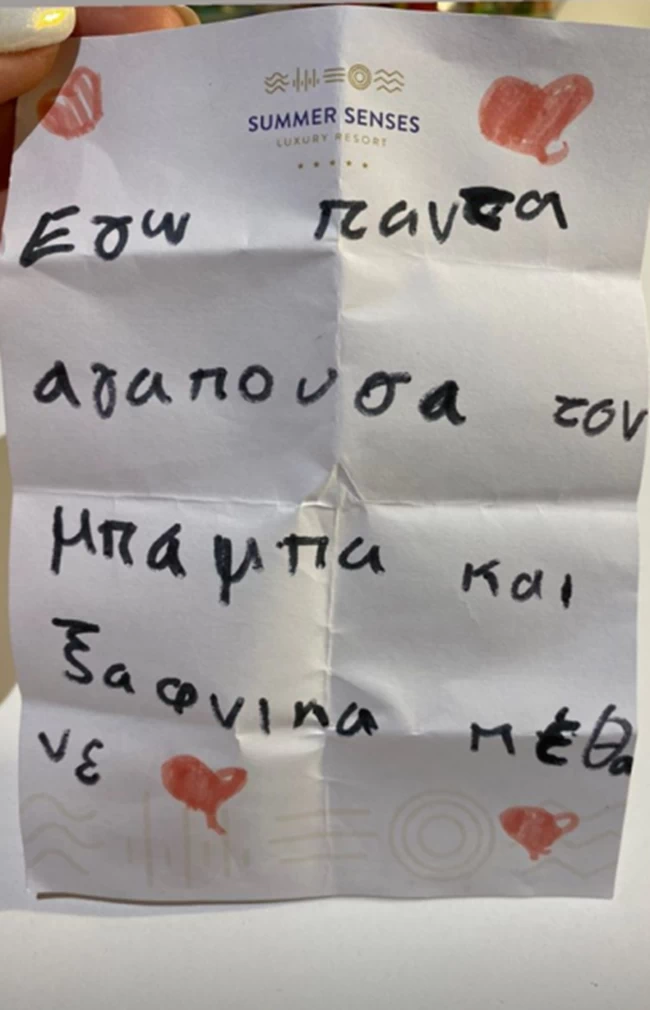 SUMMER SENSES
LUXURY RESORT
Εγω παντα
αγαπουσα τον
μπαμπα και
ξαφνικα πεθα
νε